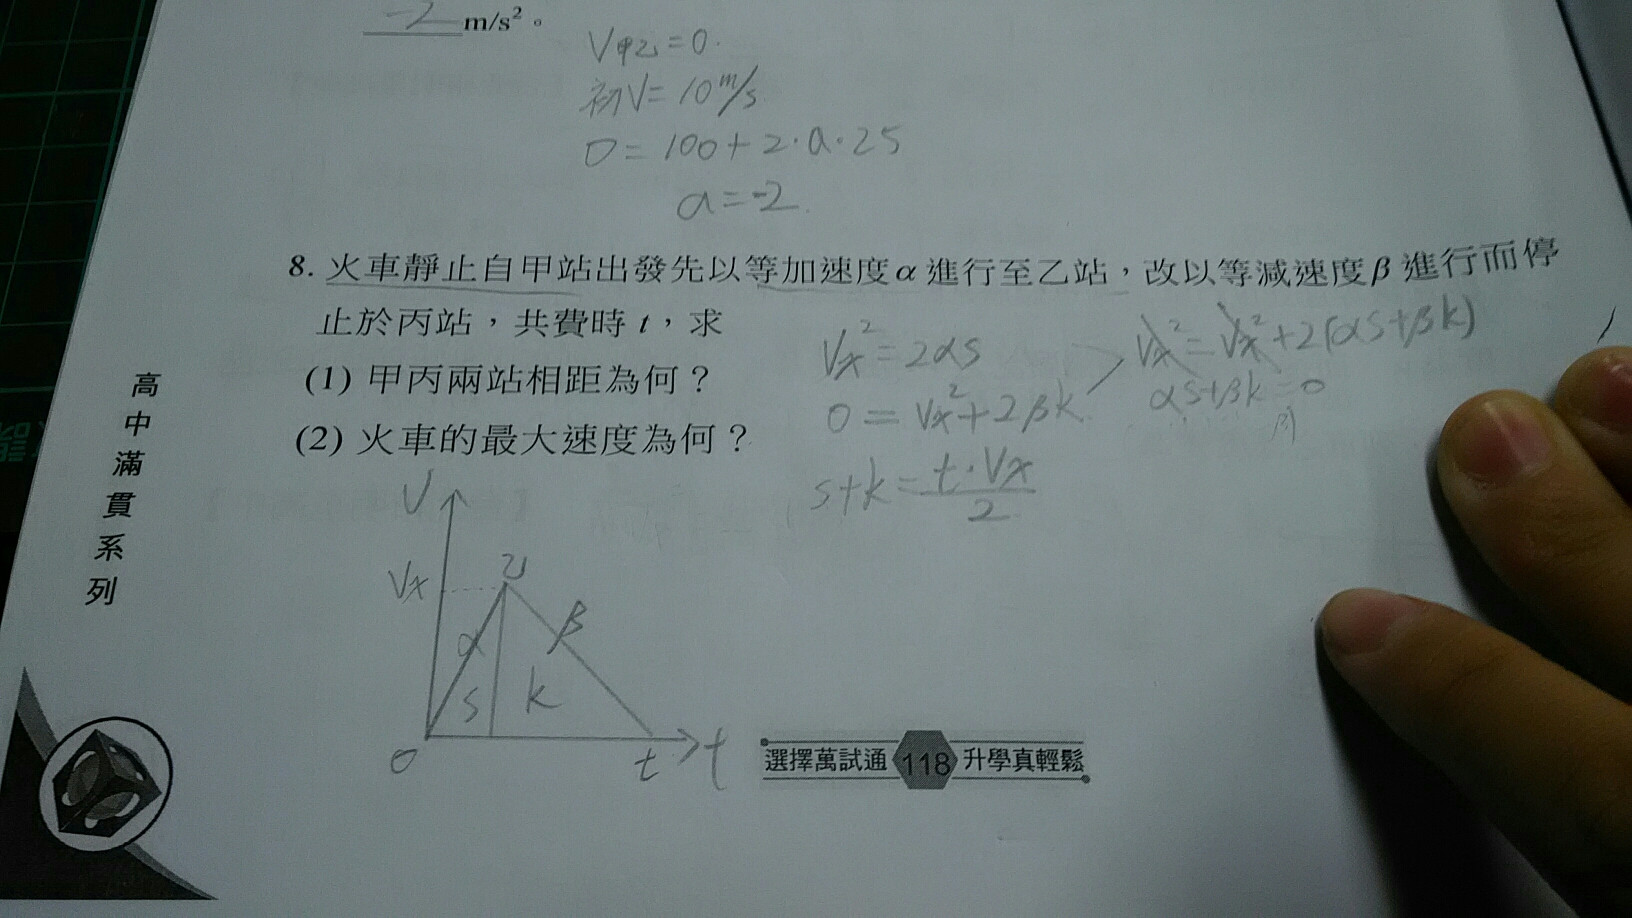 -2 m/s²。
V甲乙=0.
初V=10m/s
0=100+2·a·25
a=-2.
8. 火車靜止自甲站出發先以等加速度α進行至乙站，改以等減速度β進行而停
止於丙站，共費時 t，求
(1) 甲丙兩站相距為何？
(2) 火車的最大速度為何？
Vx²=2αs
0=Vx²+2βk
s+k=t·Vx/2
Vx²=Vx²+2(αs+βk)
αs+βk=0
V
Vx
乙
α
β
s
k
0
t
t
高中滿貫系列
選擇萬試通 118 升學真輕鬆